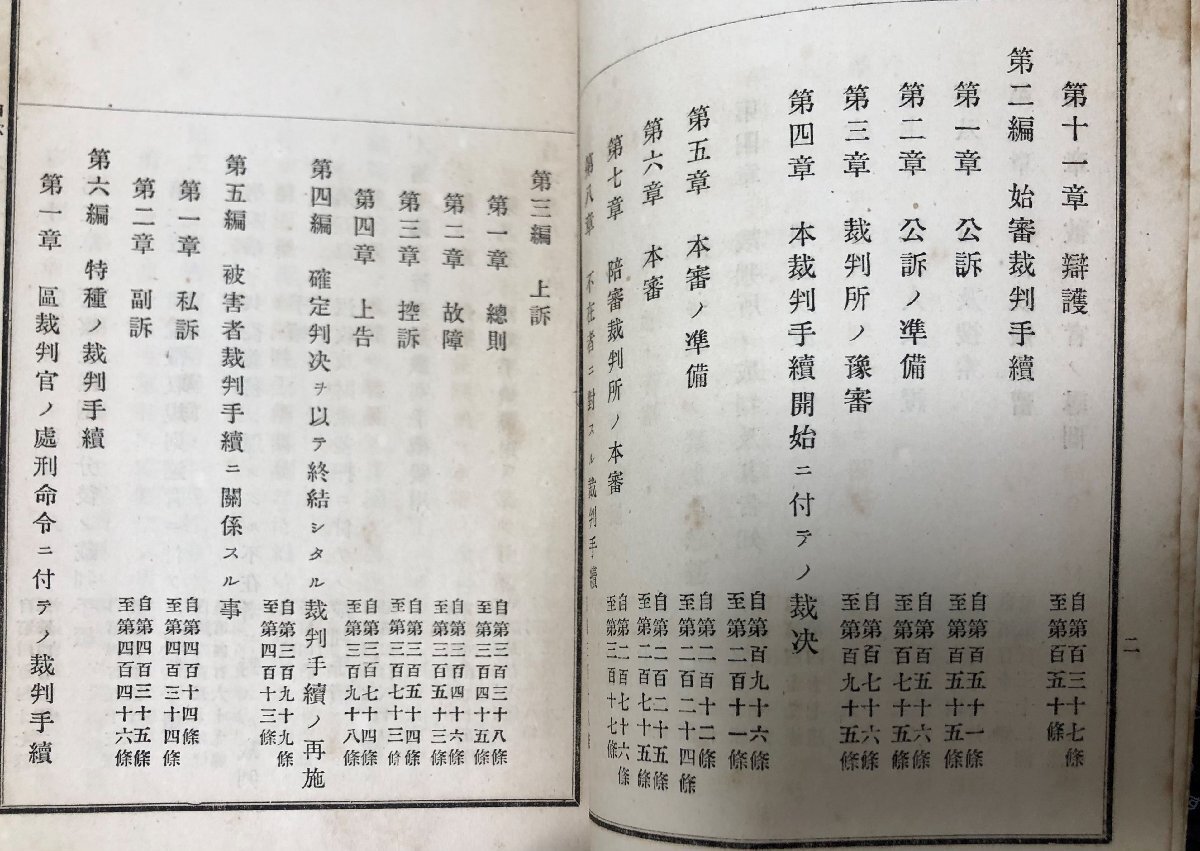 第十一章 辯護
自第百三十七條
至第百五十條
第二編 始審裁判手續
第一章 公訴
自第百五十一條
至第百五十五條
第二章 公訴ノ準備
自第百五十六條
至第百七十五條
第三章 裁判所ノ豫審
自第百七十六條
至第百九十五條
第四章 本裁判手續開始ニ付テノ裁決
自第百九十六條
至第二百十一條
第五章 本審ノ準備
自第二百十二條
至第二百二十四條
第六章 本審
自第二百二十五條
至第二百七十五條
第七章 陪審裁判所ノ本審
自第二百七十六條
至第三百十七條
第八章 不在者ニ對スル裁判手續
第三編 上訴
第一章 總則
自第三百三十八條
至第三百四十五條
第二章 故障
自第三百四十六條
至第三百五十三條
第三章 控訴
自第三百五十四條
至第三百七十三條
第四章 上告
自第三百七十四條
至第三百九十八條
第四編 確定判决ヲ以テ終結シタル裁判手續ノ再施
自第三百九十九條
至第四百十三條
第五編 被害者裁判手續ニ關係スル事
第一章 私訴
自第四百十四條
至第四百三十四條
第二章 副訴
自第四百三十五條
至第四百四十六條
第六編 特種ノ裁判手續
第一章 區裁判官ノ處刑命令ニ付テノ裁判手續
二